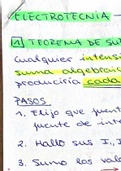 ELECTROTECNIA
1 TEOREMA DE SU
cualquier intensi
suma algebraic
produciría cada
PASOS
1. Elijo que fuent
fuente de inte
2. Hallo sus I,
3. Sumo los valo